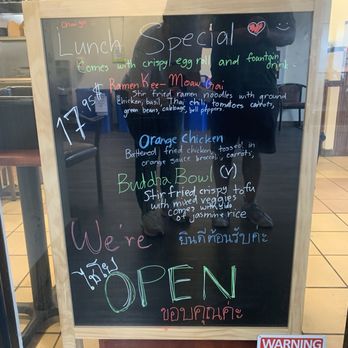 Lunch Special
Comes with crispy egg roll and fountain
drink.
17.95$
Ramen Kee-Moaw Gai
Stir fried ramen noodles with ground
chicken, basil, Thai chili, tomatoes carrots,
green beans, cabbage, bell peppers
Orange Chicken
Battered fried chicken, tossed in
orange sauce broccoli, carrots,
Buddha Bowl (V)
Stir fried crispy tofu
with mixed veggies
comes with
of jasmine rice
We're
ยินดีต้อนรับค่ะ
OPEN
ขอบคุณค่ะ
WARNING